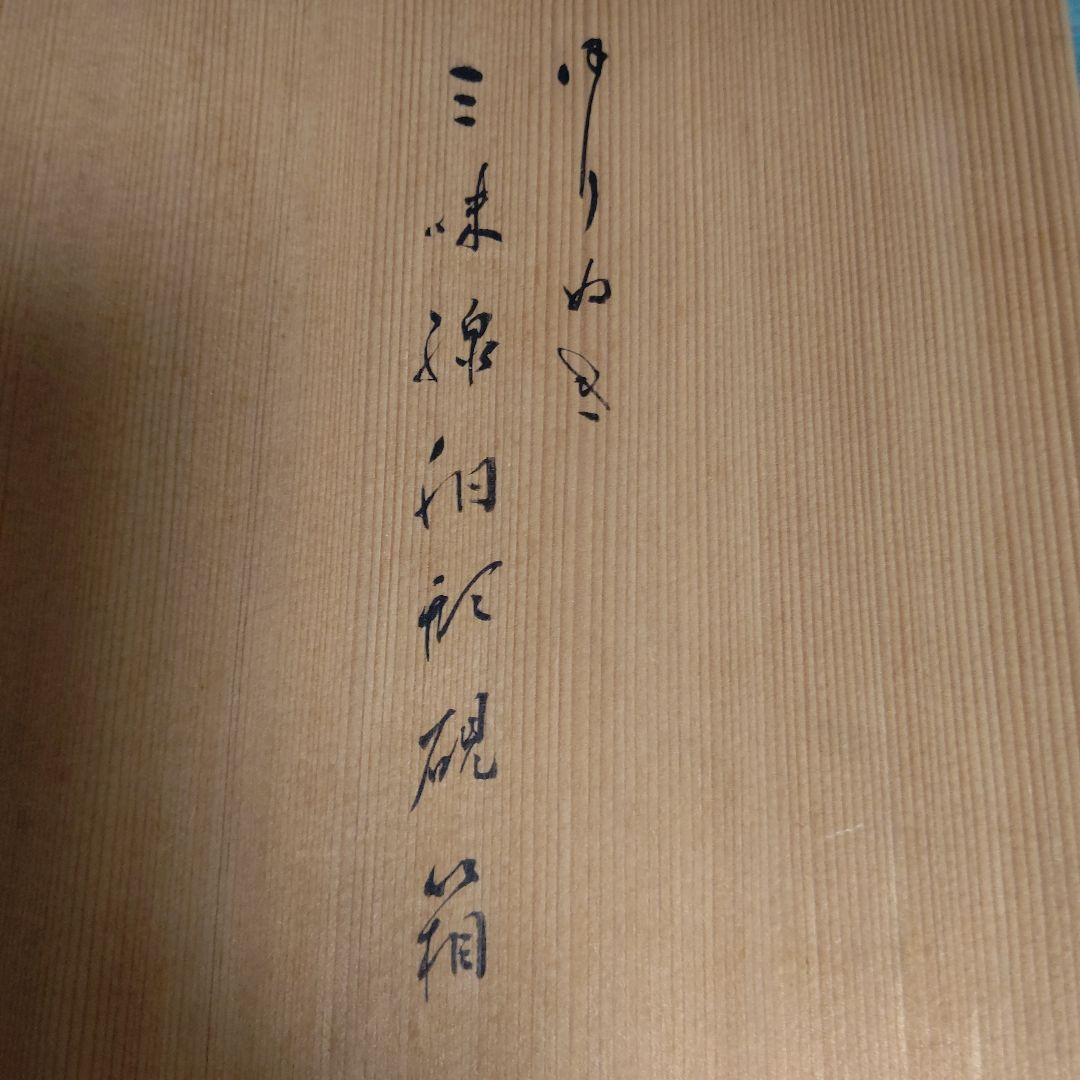 ほりぬき
三味線胴形硯箱